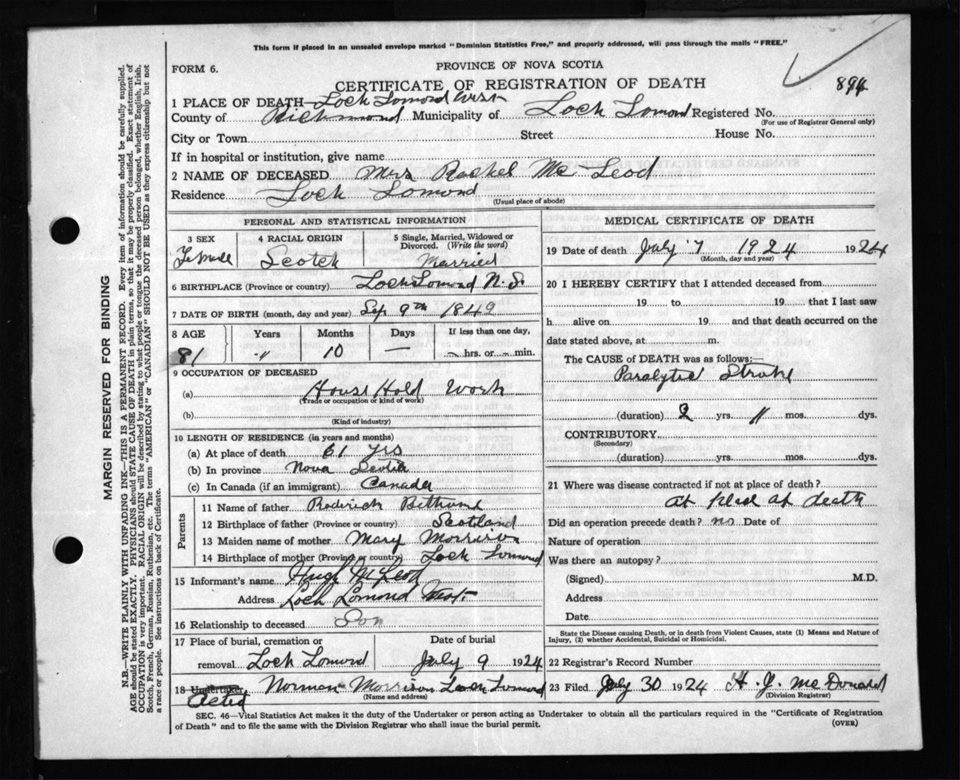 This form if placed in an unsealed envelope marked "Dominion Statistics Free," and properly addressed, will pass through the mails "FREE."
FORM 6.
PROVINCE OF NOVA SCOTIA
CERTIFICATE OF REGISTRATION OF DEATH
894
1 PLACE OF DEATH— Loch Lomond West
County of Richmond Municipality of Loch Lomond Registered No.
(For use of Registrar General only)
City or Town Street House No.
If in hospital or institution, give name
2 NAME OF DECEASED Mrs Rachel Mc Leod
Residence Loch Lomond
(Usual place of abode)
PERSONAL AND STATISTICAL INFORMATION
3 SEX Female
4 RACIAL ORIGIN Scotch
5 Single, Married, Widowed or Divorced. (Write the word) Married
6 BIRTHPLACE (Province or country) Loch Lomond N.S.
7 DATE OF BIRTH (month, day and year) Sep 9th
8 AGE Years Months Days If less than one day,
81 " 10 — hrs. or min.
9 OCCUPATION OF DECEASED
(a) House Hold Work
(Trade or occupation or kind of work)
(b)
(Kind of industry)
10 LENGTH OF RESIDENCE (in years and months)
(a) At place of death 61 yrs
(b) In province Nova Scotia
(c) In Canada (if an immigrant) Canada
Parents
11 Name of father Roderick Bethune
12 Birthplace of father (Province or country) Scotland
13 Maiden name of mother Mary Morrison
14 Birthplace of mother (Province or country) Loch Lomond
15 Informant's name Hugh McLeod
Address Loch Lomond West
16 Relationship to deceased Son
17 Place of burial, cremation or removal Loch Lomond
Date of burial July 9 1924
18 Undertaker Acted Norman Morrison Loch Lomond
(Name and address)
MEDICAL CERTIFICATE OF DEATH
19 Date of death July 7 1924 1924
(Month, day and year)
20 I HEREBY CERTIFY that I attended deceased from
19 to 19 that I last saw
h alive on 19 and that death occurred on the
date stated above, at m.
The CAUSE OF DEATH was as follows:—
Paralytic Stroke
(duration) 2 yrs. 11 mos. dys.
CONTRIBUTORY
(Secondary)
(duration) yrs. mos. dys.
21 Where was disease contracted if not at place of death?
at place of death
Did an operation precede death? no Date of
Nature of operation
Was there an autopsy?
(Signed) M.D.
Address
Date
State the Disease causing Death, or in death from Violent Causes, state (1) Means and Nature of
Injury, (2) whether Accidental, Suicidal or Homicidal.
22 Registrar's Record Number
23 Filed July 30 1924 H. J. McDonald
(Division Registrar)
SEC. 46—Vital Statistics Act makes it the duty of the Undertaker or person acting as Undertaker to obtain all the particulars required in the "Certificate of Registration
of Death" and to file the same with the Division Registrar who shall issue the burial permit.
(OVER)
MARGIN RESERVED FOR BINDING
N.B.—WRITE PLAINLY WITH UNFADING INK—THIS IS A PERMANENT RECORD. Every item of information should be carefully supplied.
AGE should be stated EXACTLY. PHYSICIANS should STATE CAUSE OF DEATH in plain terms, so that it may be properly classified. Exact statement of
OCCUPATION is very important. RACIAL ORIGIN will be described by stating to what people or tongue the deceased person belonged, whether English, Irish,
Scotch, French, German, Russian, Ruthenian, etc. The terms "AMERICAN" or "CANADIAN" SHOULD NOT BE USED as they express citizenship but not
a race or people. See instructions on back of Certificate.